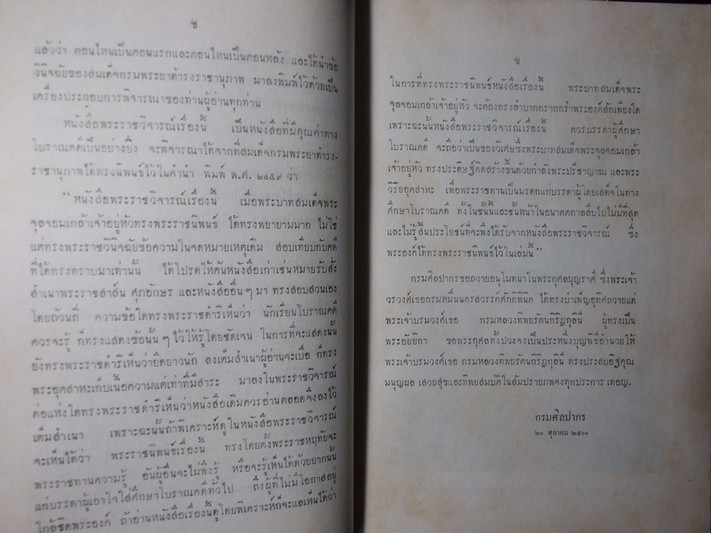 ช
แล้วว่า ตอนไหนเป็นตอนแรกและตอนไหนเป็นตอนหลัง และได้นำข้อ
วินิจฉัยของสมเด็จกรมพระยาดำรงราชานุภาพ มาลงพิมพ์ไว้ด้วยเป็น
เครื่องประกอบการพิจารณาของท่านผู้อ่านทุกท่าน
หนังสือพระราชวิจารณ์เรื่องนี้ เป็นหนังสือที่มีคุณค่าทาง
โบราณคดีเป็นอย่างยิ่ง จะพิจารณาได้จากที่สมเด็จกรมพระยาดำรง-
ราชานุภาพได้ทรงนิพนธ์ไว้ในคำนำ พิมพ์ พ.ศ. ๒๔๕๙ ว่า
"หนังสือพระราชวิจารณ์เรื่องนี้ เมื่อพระบาทสมเด็จพระ
จุลจอมเกล้าเจ้าอยู่หัวทรงพระราชนิพนธ์ ได้ทรงพยายามมาก ไม่ใช่
แต่ทรงพระราชวินิจฉัยข้อความในจดหมายเหตุเดิม สอบเทียบกับคดี
ที่ได้ทรงทราบมาเท่านั้น ได้โปรดให้ค้นหนังสือเก่าเช่นหมายรับสั่ง
สำเนาพระราชสาส์น ศุภอักษร และหนังสืออื่น ๆ มา ทรงสอบสวนเอง
โดยถ้วนถี่ ความข้อใดทรงพระราชดำริเห็นว่า นักเรียนโบราณคดี
ควรจะรู้ ก็ทรงแสดงข้อนั้น ๆ ไว้ให้รู้โดยชัดเจน ในการที่จะแสดงนั้น
ยังทรงพระราชดำริเห็นว่ายืดยาวนัก ลงเต็มสำเนาผู้อ่านจะเบื่อ ก็ทรง
พระอุตสาหะเก็บเนื้อความแต่เท่าที่มีสาระ มาลงในพระราชวิจารณ์
ต่อแห่งใดทรงพระราชดำริเห็นว่าหนังสือเดิมควรอ่านตลอดจึงลงไว้
เต็มสำเนา เพราะฉะนั้นถ้าพิเคราะห์ดูในหนังสือพระราชวิจารณ์
จะเห็นได้ว่า พระราชนิพนธ์เรื่องนี้ ทรงโดยตั้งพระราชหฤทัยจะ
พระราชทานความรู้ อันผู้อื่นจะไม่พึงรู้ หรือจะรู้เห็นได้ด้วยยากนั้น
แก่บรรดาผู้เอาใจใส่ศึกษาโบราณคดีทั่วไป ถึงผู้ที่ไม่มีโอกาสอยู่
ใกล้ชิดพระองค์ ถ้าอ่านหนังสือเรื่องนี้ดูโดยพิเคราะห์ก็จะแลเห็นได้ว่า
ซ
ในการที่ทรงพระราชนิพนธ์หนังสือเรื่องนี้ พระบาทสมเด็จพระ
จุลจอมเกล้าเจ้าอยู่หัว จะต้องทรงลำบากตรากตรำพระองค์สักเพียงใด
เพราะฉะนั้นหนังสือพระราชวิจารณ์เรื่องนี้ ควรบรรดาผู้ศึกษา
โบราณคดี จะถือว่าเป็นของวิเศษซึ่งพระบาทสมเด็จพระจุลจอมเกล้า
เจ้าอยู่หัว ทรงประดิษฐ์คิดสร้างขึ้นด้วยกำลังพระปรีชาญาณ และพระ
วิริยอุตสาหะ เพื่อพระราชทานเป็นมรดกแก่บรรดาผู้โดยเสด็จในทาง
ศึกษาโบราณคดี ทั้งในชั้นนี้และชั้นหน้าในอนาคตกาลสืบไปไม่มีที่สุด
และไม่รู้สิ้นประโยชน์ที่จะพึงได้รับจากหนังสือพระราชวิจารณ์ ซึ่ง
พระองค์ได้ทรงพระราชนิพนธ์ไว้ในเล่มนี้"
กรมศิลปากรขอถวายอนุโมทนาในพระกุศลบุญราศี ซึ่งพระเจ้า
วรวงศ์เธอกรมหมื่นนครสวรรค์ศักดิพินิต ได้ทรงบำเพ็ญอุทิศถวายแด่
พระเจ้าบรมวงศ์เธอ กรมหลวงทิพยรัตนกิริฎกุลินี ผู้ทรงเป็น
พระอัยยิกา ขอพระกุศลทั้งปวงจงเป็นประหนึ่งบุญพิธีอำนวยให้
พระเจ้าบรมวงศ์เธอ กรมหลวงทิพยรัตนกิริฎกุลินี ทรงประสบอิฐคุณ
มนุญผล เสวยสุขและทิพยสมบัติในสัมปรายภพจงทุกประการ เทอญ.
กรมศิลปากร
๒๐ ตุลาคม ๒๕๐๑